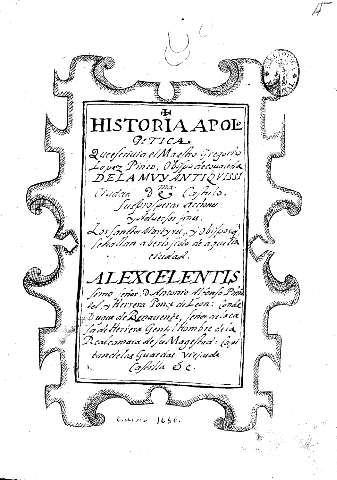 HISTORIA APOLO
GETICA
Que escriuia el Maestro Gregorio
Lopez Pinto, Obispo
DE LA MUY ANTIQUISSI
ma
Ciudad de Castulo.
Sus prosperos
y aduersos fines
Los santos Martyres, y Obispos q
se hallan aber sido de aquella
ciudad.
AL EXCELENTIS
simo señor D Antonio Alfonso Pimen
tel, y Herrera Ponze de Leon: Conde
Duque de Benauente, señor de la ca
sa de Herrera Gentilhombre de la
Real camara de su Magestad: Capi
tan de las Guardas viejas de
Castilla &c.